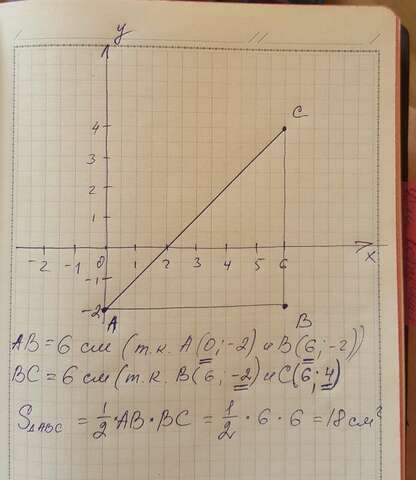 y
C
4
3
2
1
-2 -1 0 2 3 4 5 6 x
-1
-2
A B
AB = 6 см (т.к. A(0;-2) и B(6;-2))
BC = 6 см (т.к. B(6;-2) и C(6;4))
S△ABC = 1/2 · AB · BC = 1/2 · 6 · 6 = 18 см²